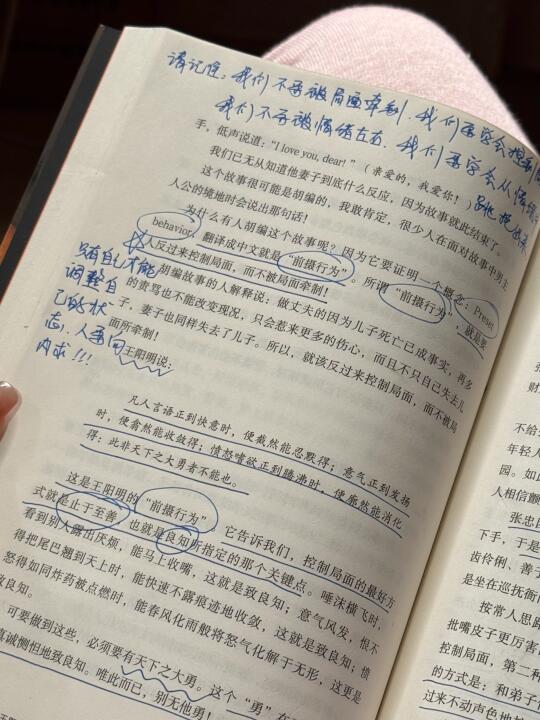 请记住：我们不要被局面牵制，我们要学会控制
我们不要被情绪左右，我们要学会从情绪
手，低声说道：“I love you, dear!”（亲爱的，我爱你！）
我们已无从知道他妻子到底什么反应，因为故事就此结束了。
这个故事很可能是胡编的，我敢肯定，很少人在面对故事中男主
人公的境地时会说出那句话！
为什么有人胡编这个故事呢？因为它要证明一个概念：Preset
behavior，翻译成中文就是“前摄行为”。所谓“前摄行为”，就是要
人反过来控制局面，而不被局面牵制！
胡编故事的人解释说：做丈夫的因为儿子死亡已成事实，再多
的责骂也不能改变现况，只会惹来更多的伤心，而且不只自己失去儿
子，妻子也同样失去了儿子。所以，就该反过来控制局面，而不被局
面所牵制！
只有自己才能
调整自
己的状
态，人要向
内求！！！
王阳明说：
凡人言语正到快意时，便截然能忍默得；意气正到发扬
时，便翕然能收敛得；愤怒嗜欲正到腾沸时，便廓然能消化
得：此非天下之大勇者不能也。
这是王阳明的“前摄行为”，它告诉我们，控制局面的最好方
式就是止于至善，也就是良知所指定的那个关键点。唾沫横飞时，
看到别人露出厌烦，能马上收嘴，这就是致良知；意气风发，恨不
得把尾巴翘到天上时，能快速不露痕迹地收敛，这就是致良知；愤
怒得如同炸药被点燃时，能春风化雨般将怒气化解于无形，这更是
致良知。
可要做到这些，必须要有天下之大勇。这个“勇”在
真诚恻怛地致良知。唯此而已，别无他勇！
财
不给
年轻人
园。如此
人相信颤
张忠
下手，于是
齿伶俐、善于
是坐在巡抚衙
按常人思路
批嘴皮子更厉害
控制局面，第二种
的方式是：和弟子
过来不动声色地